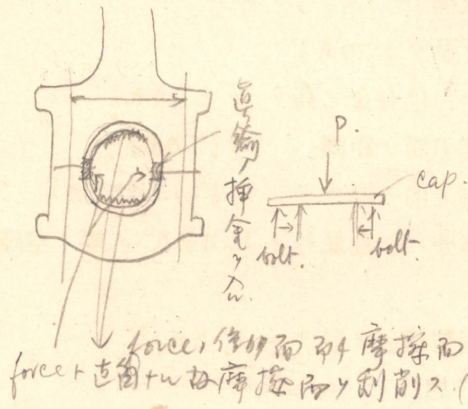 真鍮ノ挿金ヲ入ル
P.
cap.
bolt.
bolt.
forceノ作動面即チ摩擦面
forceト直角ナル故摩擦面ヲ刮削ス